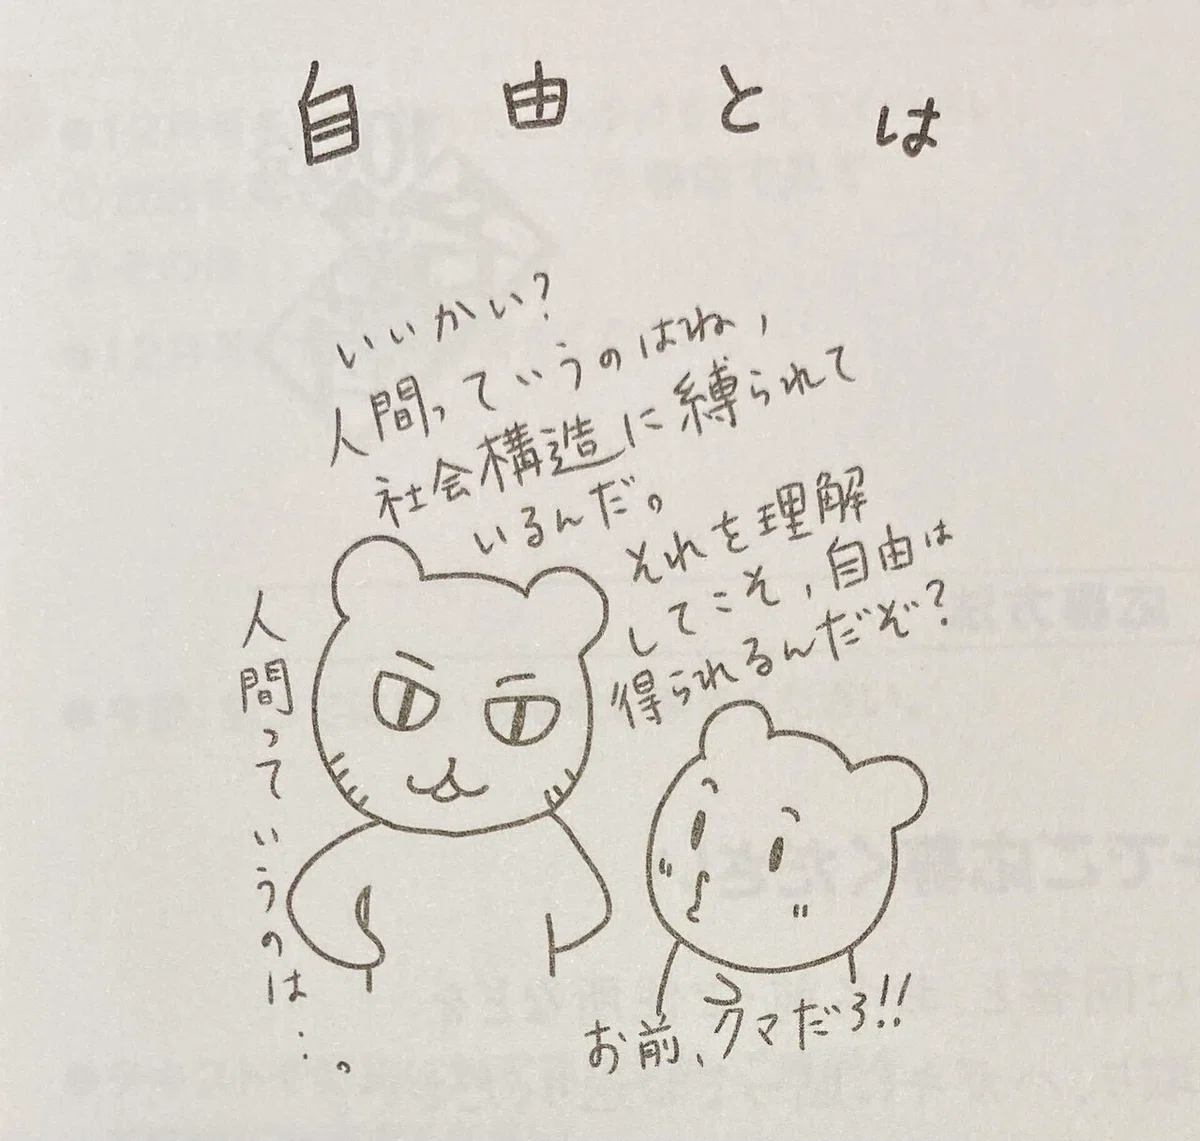 自由とは
いいかい?
人間っていうのはね,
社会構造に縛られて
いるんだ。
それを理解
してこそ,自由は
得られるんだぞ?
人間っていうのは…。
お前、クマだろ!!